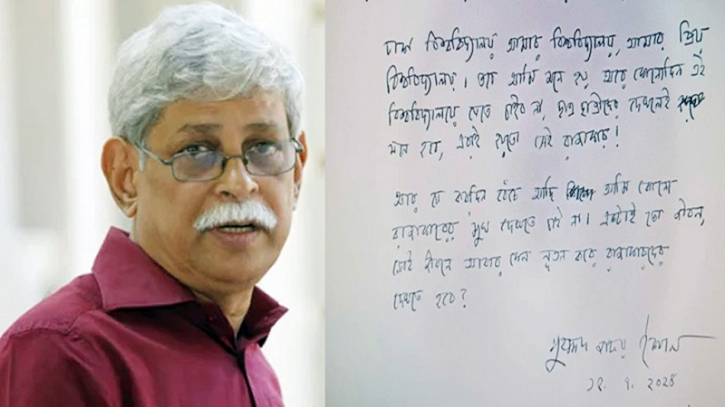 ঢাকা বিশ্ববিদ্যালয় আমার বিশ্ববিদ্যালয়, আমার প্রিয়
বিশ্ববিদ্যালয়। তবে আমি মনে হয় আর কোনোদিন এই
বিশ্ববিদ্যালয়ে যেতে চাইব না, ছাত্র ছাত্রীদের দেখলেই
মনে হবে, এরাই হয়তো সেই রাজাকার!
আর যে কয়দিন বেঁচে আছি আমি কোনো
রাজাকারের মুখ দেখতে চাই না। একটাই তো জীবন,
সেই জীবনে আবার কেন নূতন করে রাজাকারদের
দেখতে হবে?
মুহম্মদ জাফর ইকবাল
৭. ২০২৪